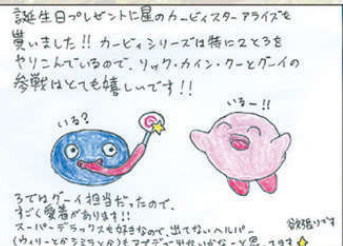 誕生日プレゼントに星のカービィスターアライズを
貰いました!! カービィシリーズは特に2と3を
やりこんでいるので、リック・カイン・クーとグーイの
参戦はとても嬉しいです!!
いる?
いるー!!
3ではグーイ担当だったので、
すごく愛着があります!!
スーパーデラックスも好きなので、出てないヘルパー
(ウィリーとかミラとかも アプデで出ないかなと思ってます
欲張りです